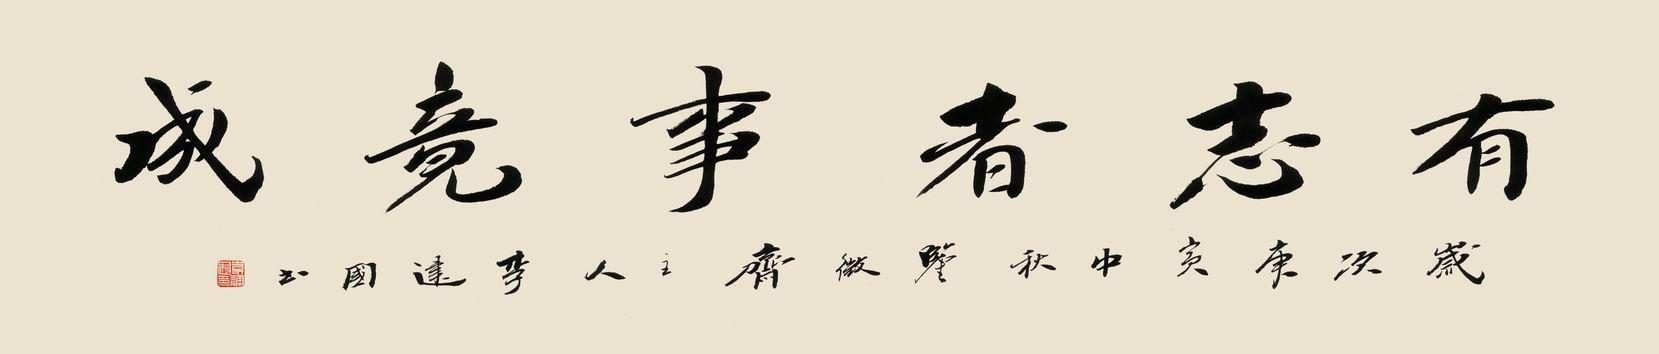 有志者事竟成
歲次庚寅中秋鑒微齋主人李達國書